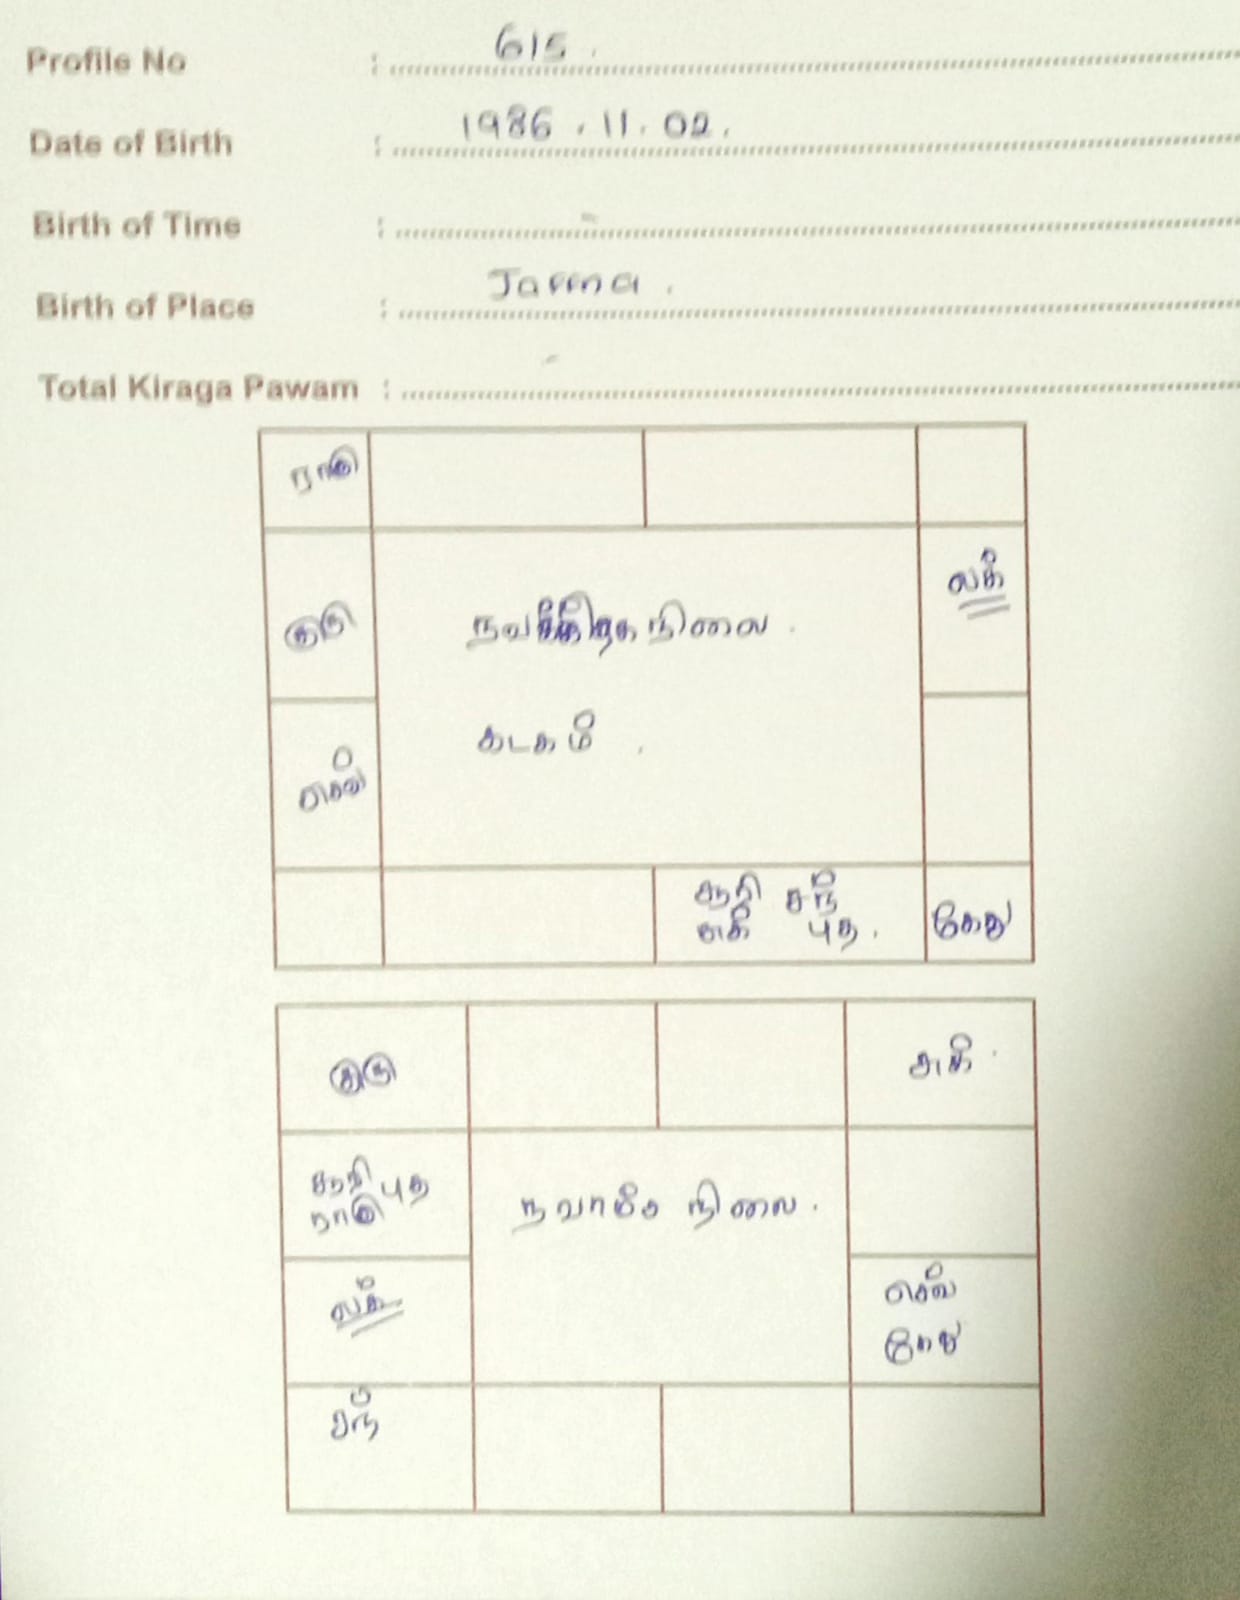 Profile No : 615.
Date of Birth : 1986.11.02.
Birth of Time : -
Birth of Place : Jaffna.
Total Kiraga Pawam : -
ராகு
லக்
குரு
நவக்கிரகநிலை.
கடகம்.
செவ்
சனி சந்
சுக் புத. கேது
குரு
சுக்.
புத
ராகு
நவாம்ச நிலை.
லக்
செவ்
கேது
சந்